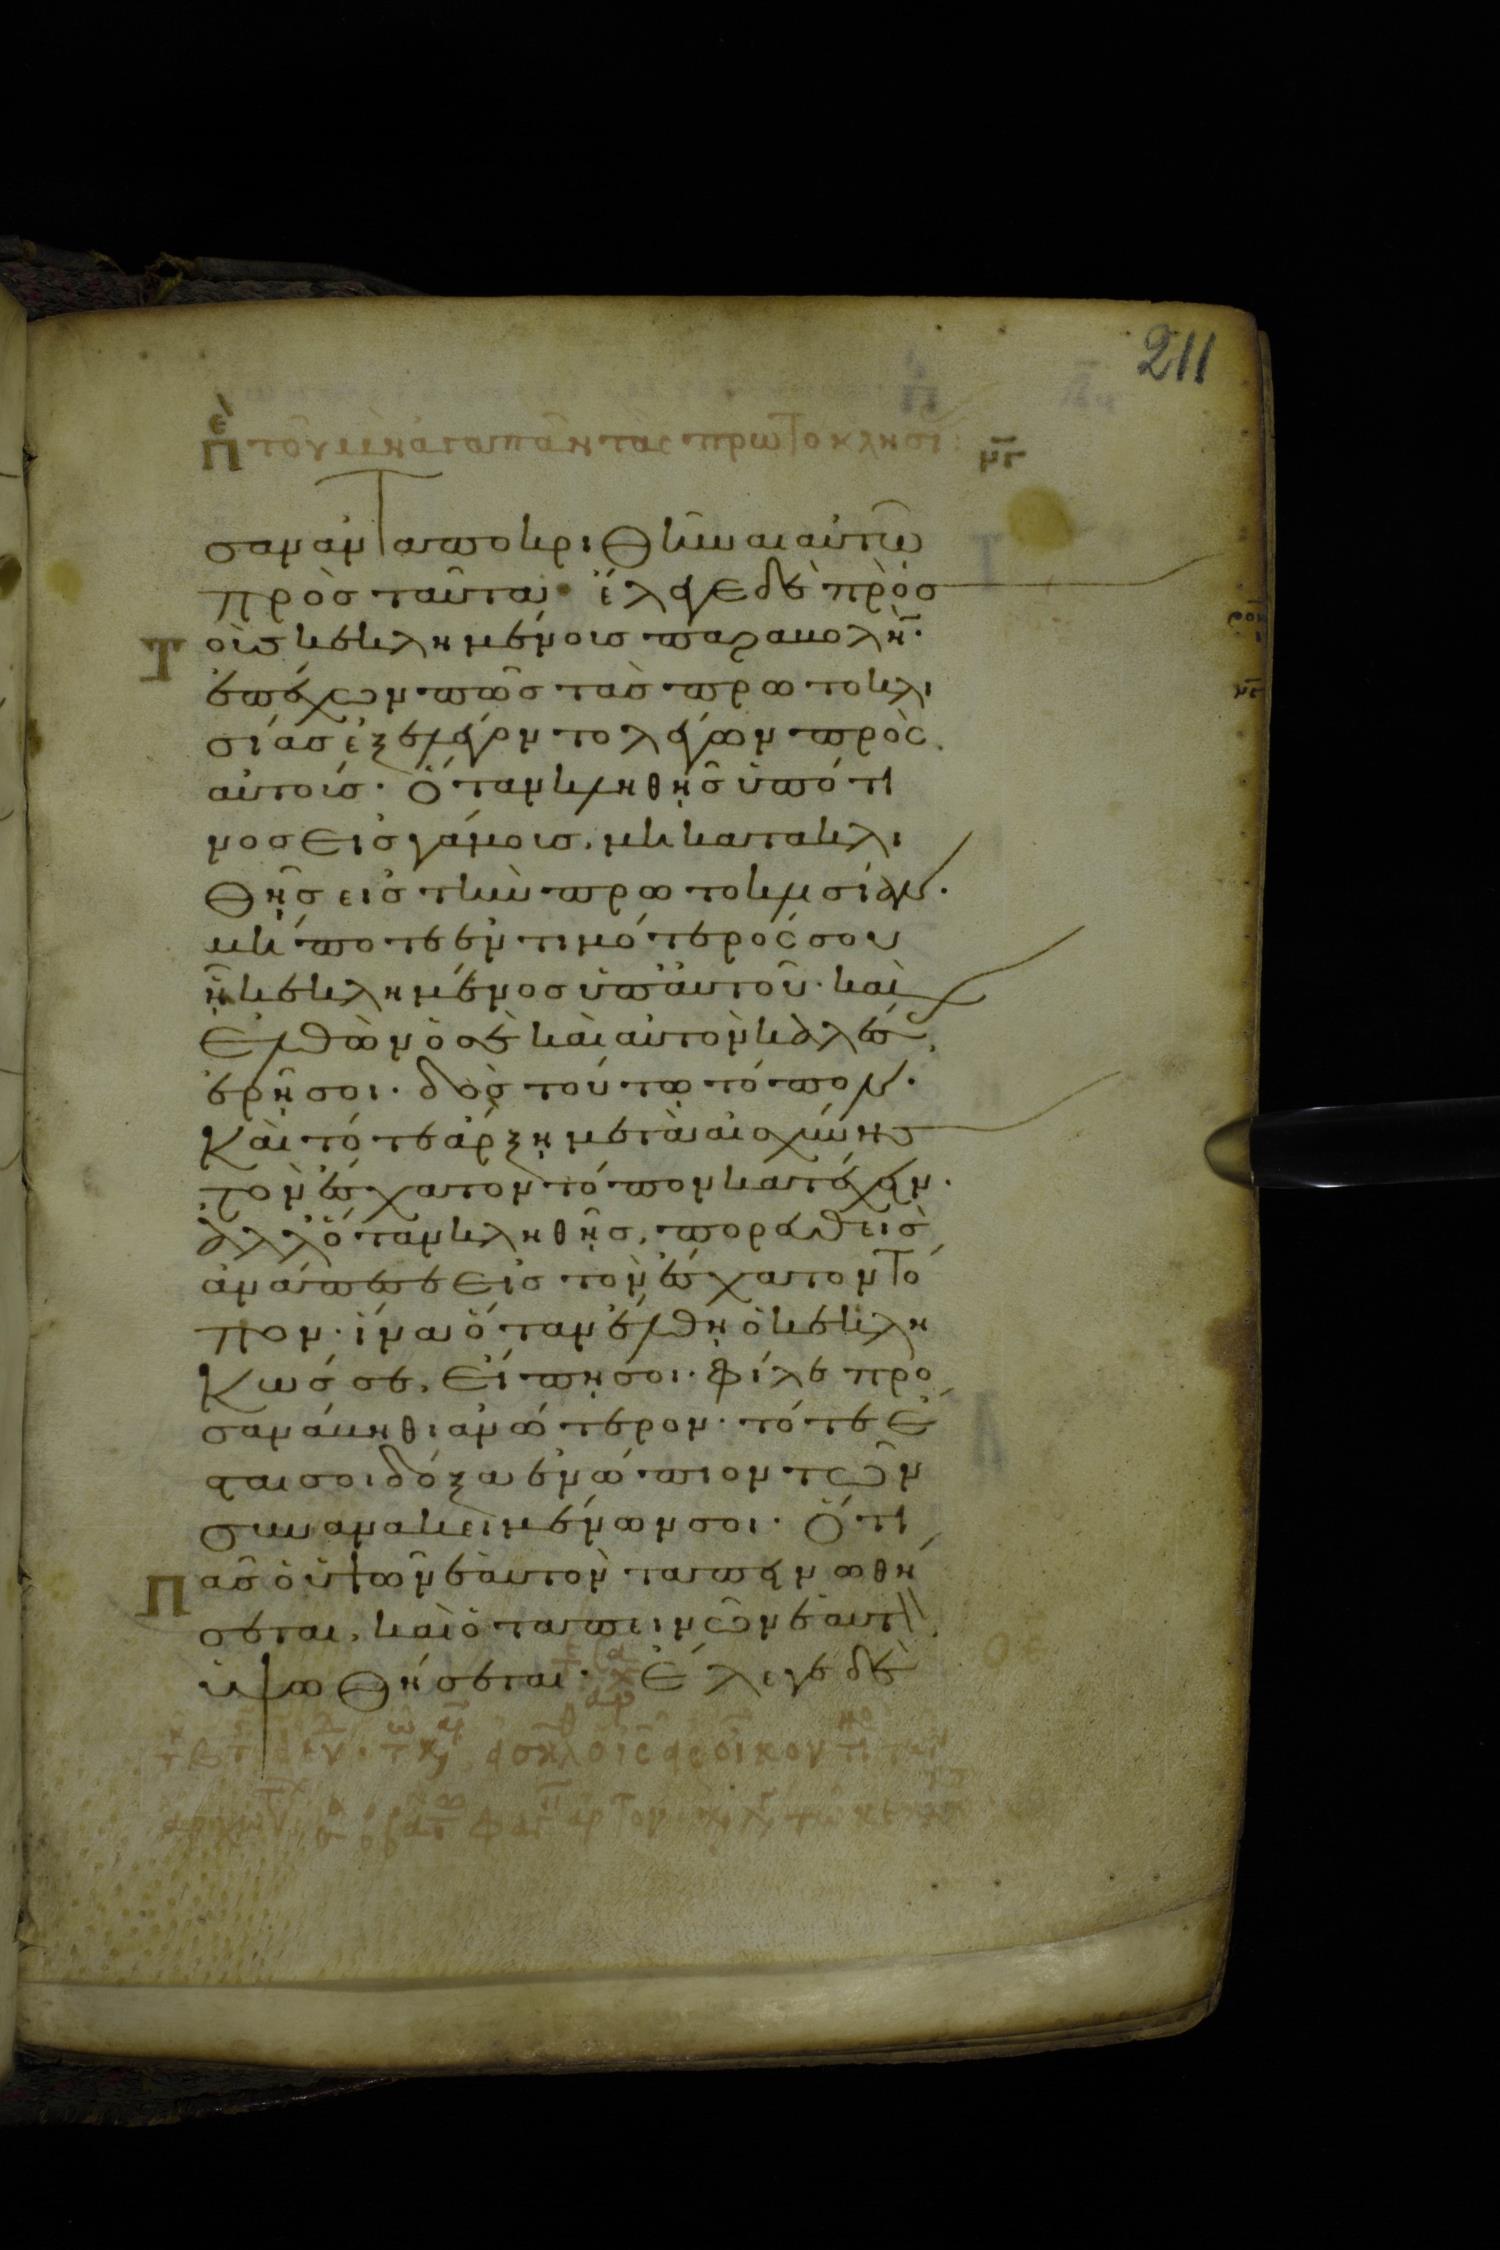 211
σαν ἀνταποκριθῆναι αὐτῶ
πρὸσ ταῦτα· ἔλεγε δὲ πρὸσ
τοὺσ κεκλημένουσ παραβολή·
ἐπέχων πῶσ τὰσ πρωτοκλι
σίασ ἐξελέγοντο λέγων πρὸς
αὐτούσ· Ὅταν κληθῆσ ὑπό τι
νοσ εἰσ γάμουσ, μὴ κατακλι
θῆσ εἰσ τὴν πρωτοκλησίαν·
μή ποτε ἐντιμότερός σου
ῆ κεκλημένοσ ὑπ' ἀυτοῦ· καὶ
ἐλθὼν ὁ σὲ καὶ αὐτὸν καλέσ
ερῆ σοι· δὸσ τούτω τόπον·
Καὶ τότε ἄρξη μετὰ αἰσχύνησ
τὸν ἔσχατον τόπον κατέχειν·
ἀλλ' ὅταν κληθῆσ, πορευθεὶσ
ἀνάπεσε εἰσ τὸν ἔσχατον τό
πον· ἵνα ὅταν ἔλθη ὁ κεκλη
Κώσ σε, εἴπη σοι· φίλε προ
σανάβηθι ἀνώτερον· τότε ἔ
σται σοι δόξα ἐνώπιον τῶν
συνανακειμένων σοι· Ὅτι
πᾶσ ὁ ὑψῶν ἑαυτὸν ταπεινωθή
σεται, καὶ ὁ ταπεινῶν ἑαυτ
ὑψωθήσεται· Ἔλεγε δὲ